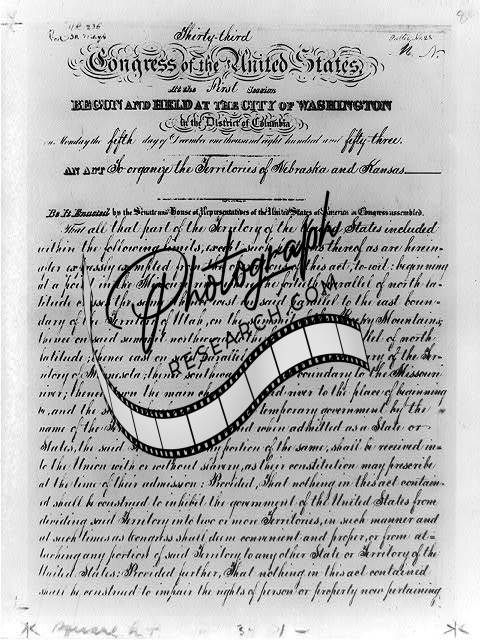 Thirty-third
Congress of the United States,
At the First Session
BEGUN AND HELD AT THE CITY OF WASHINGTON
In the District of Columbia
on Monday the fifth day of December one thousand eight hundred and fifty-three.
AN ACT To organize the Territories of Nebraska and Kansas
Be it Enacted by the Senate and House of Representatives of the United States of America in Congress assembled.
That all that part of the Territory of the United States included
within the following limits, except such thereof as are herein-
after expressly exempted from the of this act, to wit: beginning
at a point in the Missouri parallel of north la-
titude crosses the same; west said parallel to the east boun-
dary of the Territory of Utah, on the Rocky Mountains;
thence on said summit northward of north
latitude; thence east on said parallel ry of the Ter-
ritory of Minnesota; thence southward boundary to the Missouri
river; thence down the main river to the place of beginning
be, and the temporary government by the
name of the when admitted as a State or
States, the said any portion of the same, shall be received in-
to the Union with or without slavery, as their constitution may prescribe
at the time of their admission: Provided, That nothing in this act contain-
ed shall be construed to inhibit the government of the United States from
dividing said Territory into two or more Territories, in such manner and
at such times as Congress shall deem convenient and proper, or from at-
taching any portion of said Territory to any other State or Territory of the
United States: Provided further, That nothing in this act contained
shall be construed to impair the rights of person or property now pertaining
Photograph
RESEARCH.COM